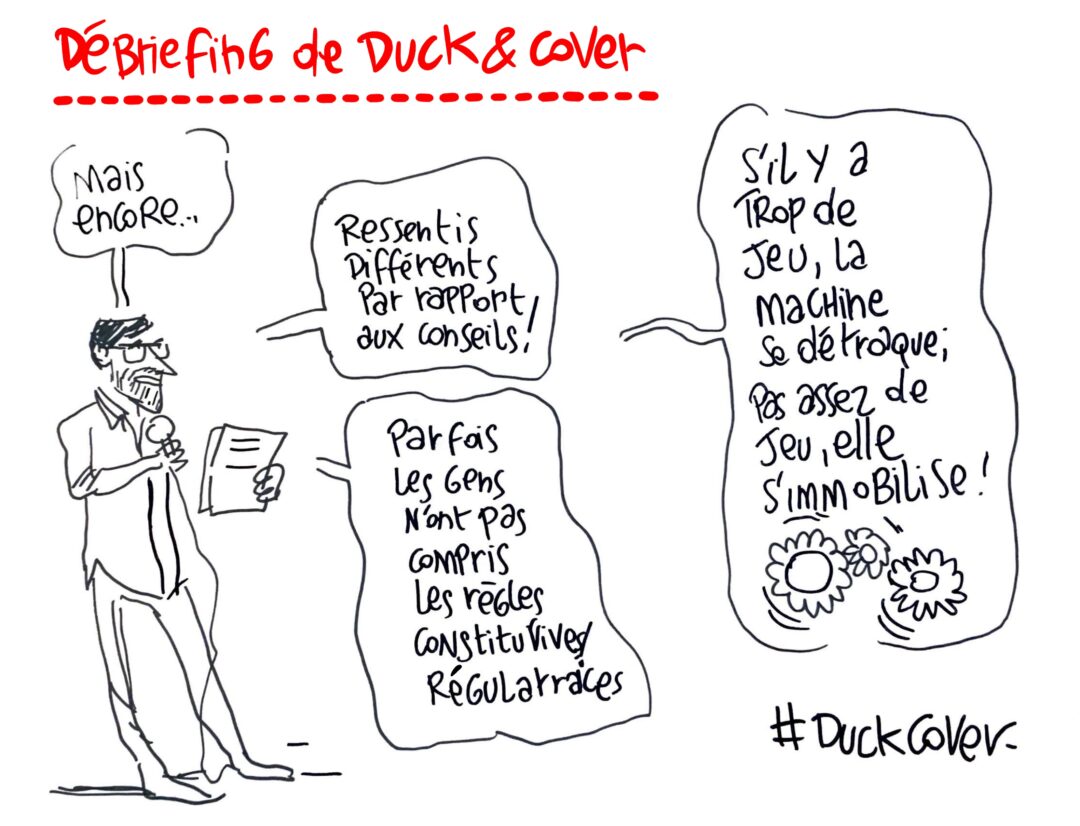 DéBriefinG de Duck & Cover
Mais
encore...
Ressentis
Différents
Par rapport
aux conseils!
Parfois
Les Gens
N'ont pas
compris
Les règles
Constitutives/
RéGulatrices
S'il y a
Trop de
Jeu, la
macHine
se détraque;
Pas assez de
Jeu, elle
s'immoBilise!
#DuckCover-